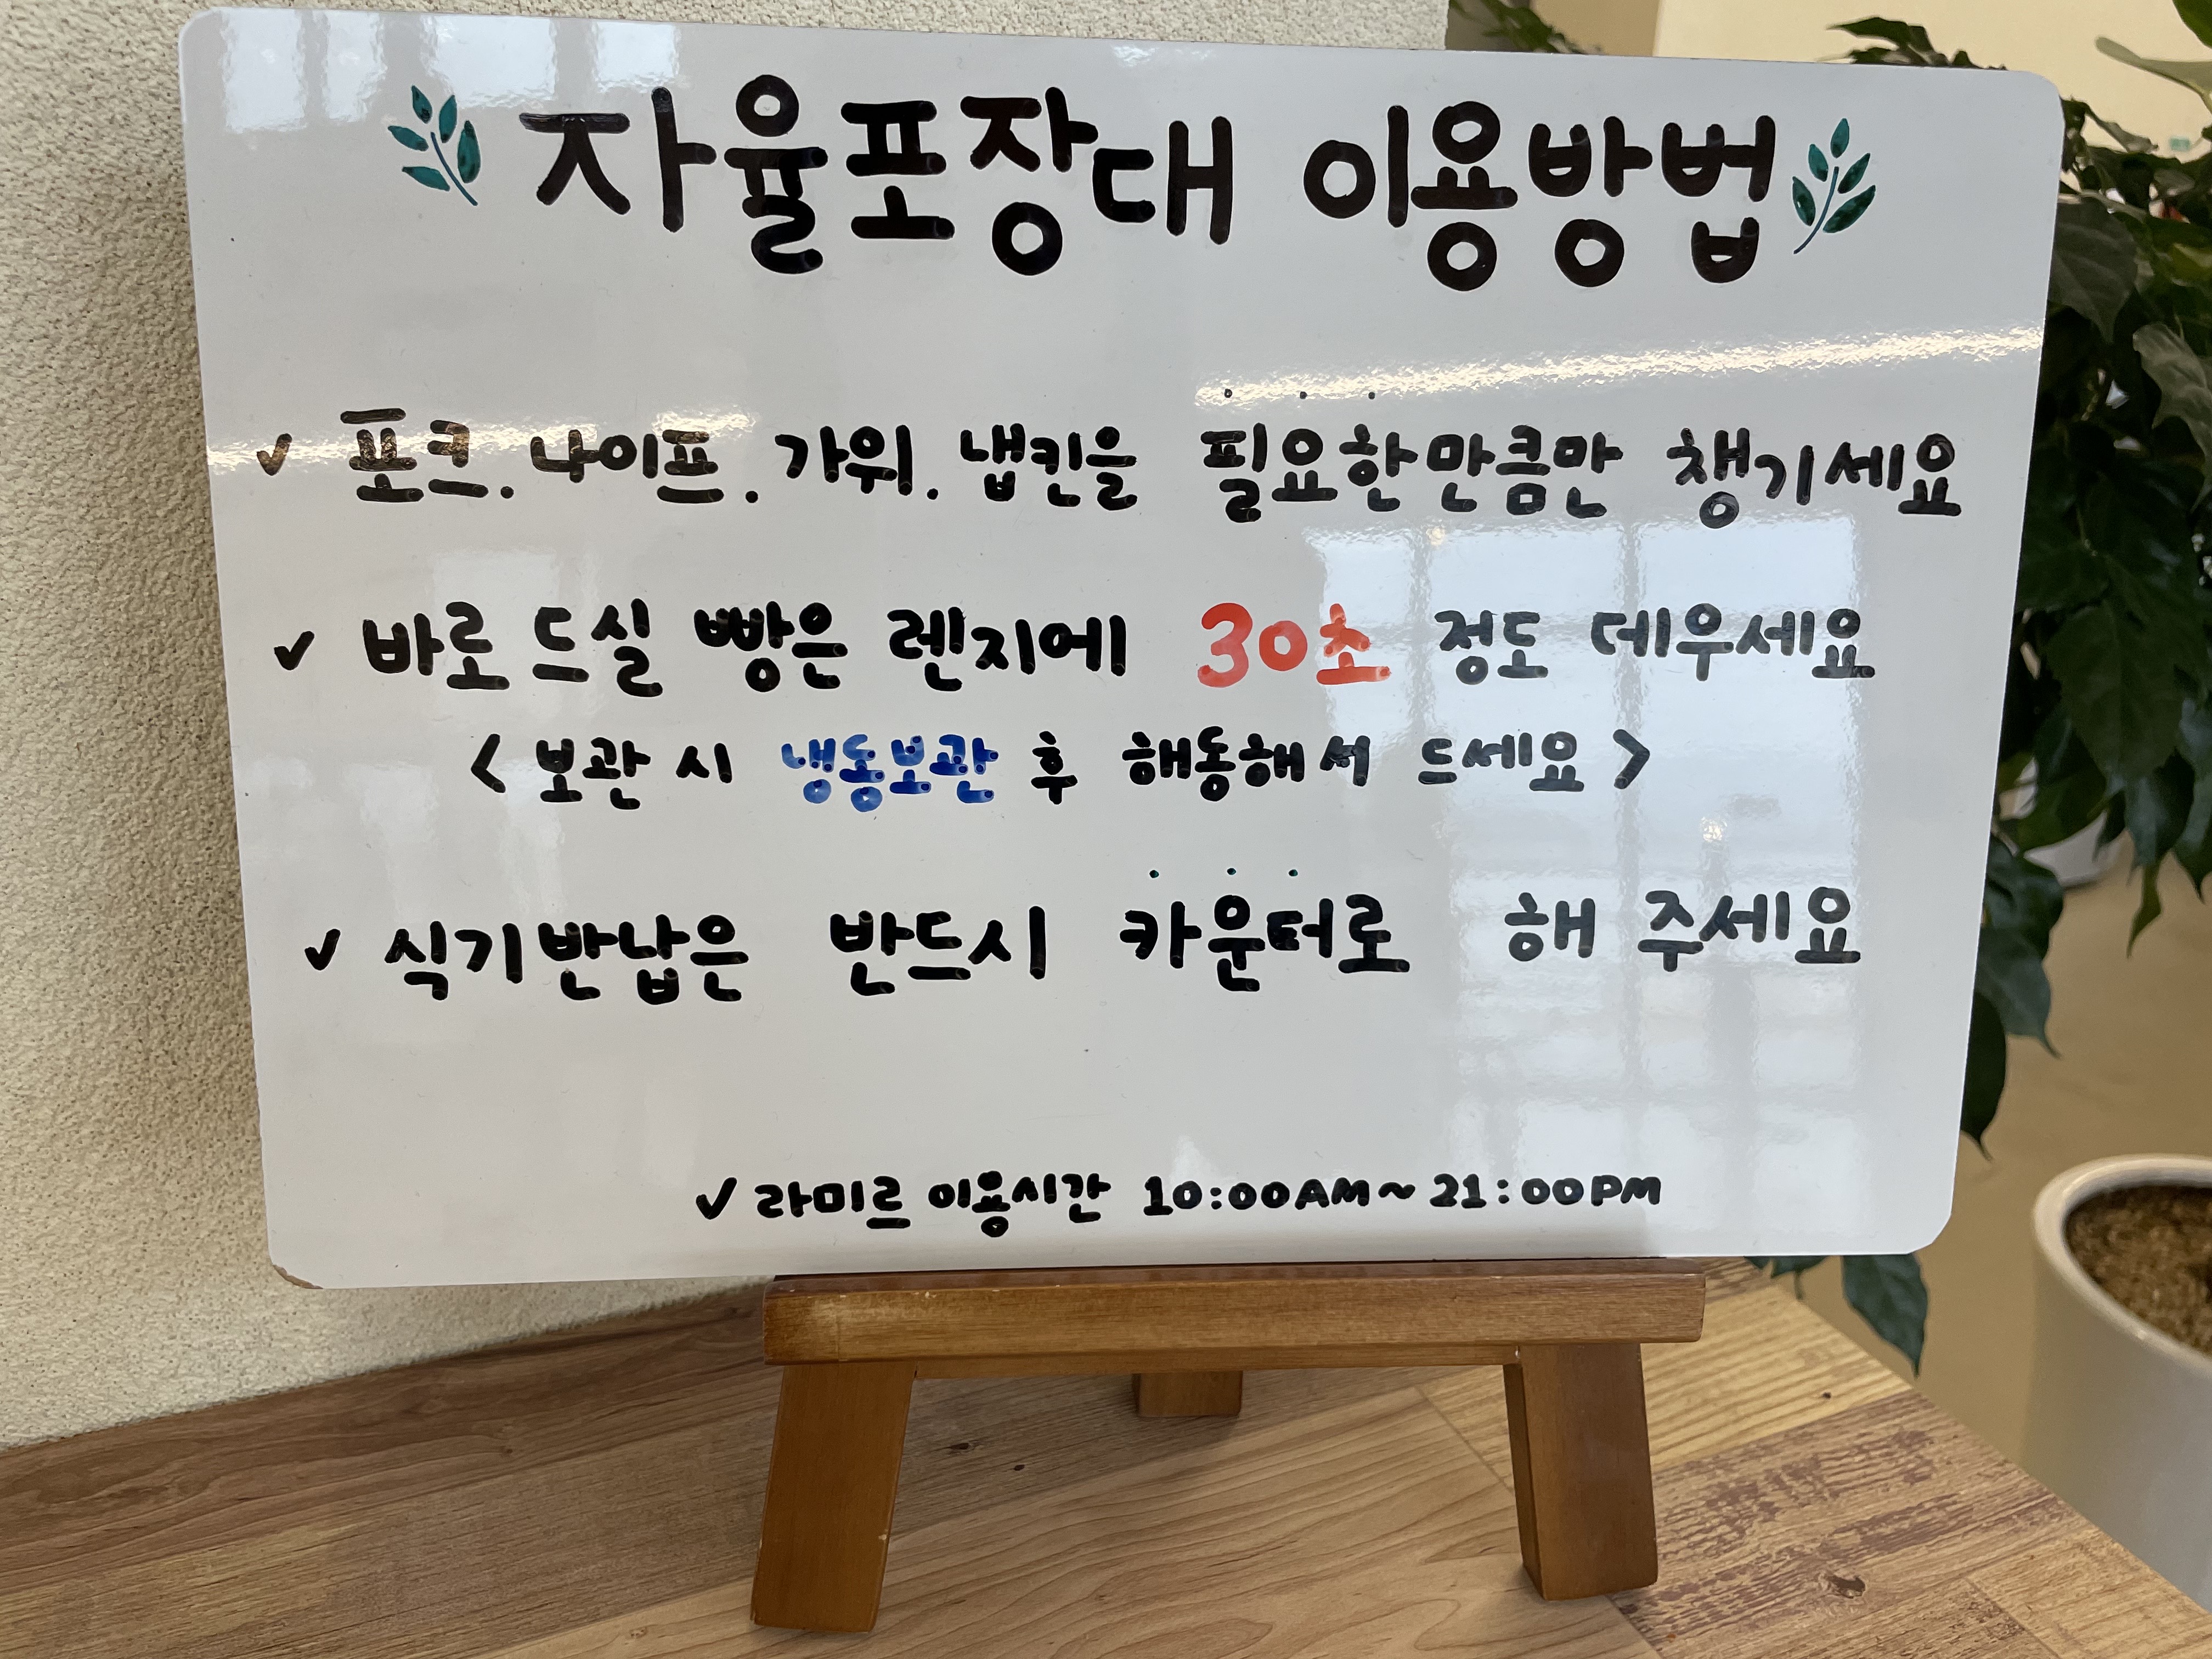 자율포장대 이용방법
✓ 포크. 나이프. 가위. 냅킨을 필요한만큼만 챙기세요
✓ 바로 드실 빵은 렌지에 30초 정도 데우세요
< 보관 시 냉동보관 후 해동해서 드세요 >
✓ 식기반납은 반드시 카운터로 해 주세요
✓ 라미르 이용시간 10:00AM~21:00PM